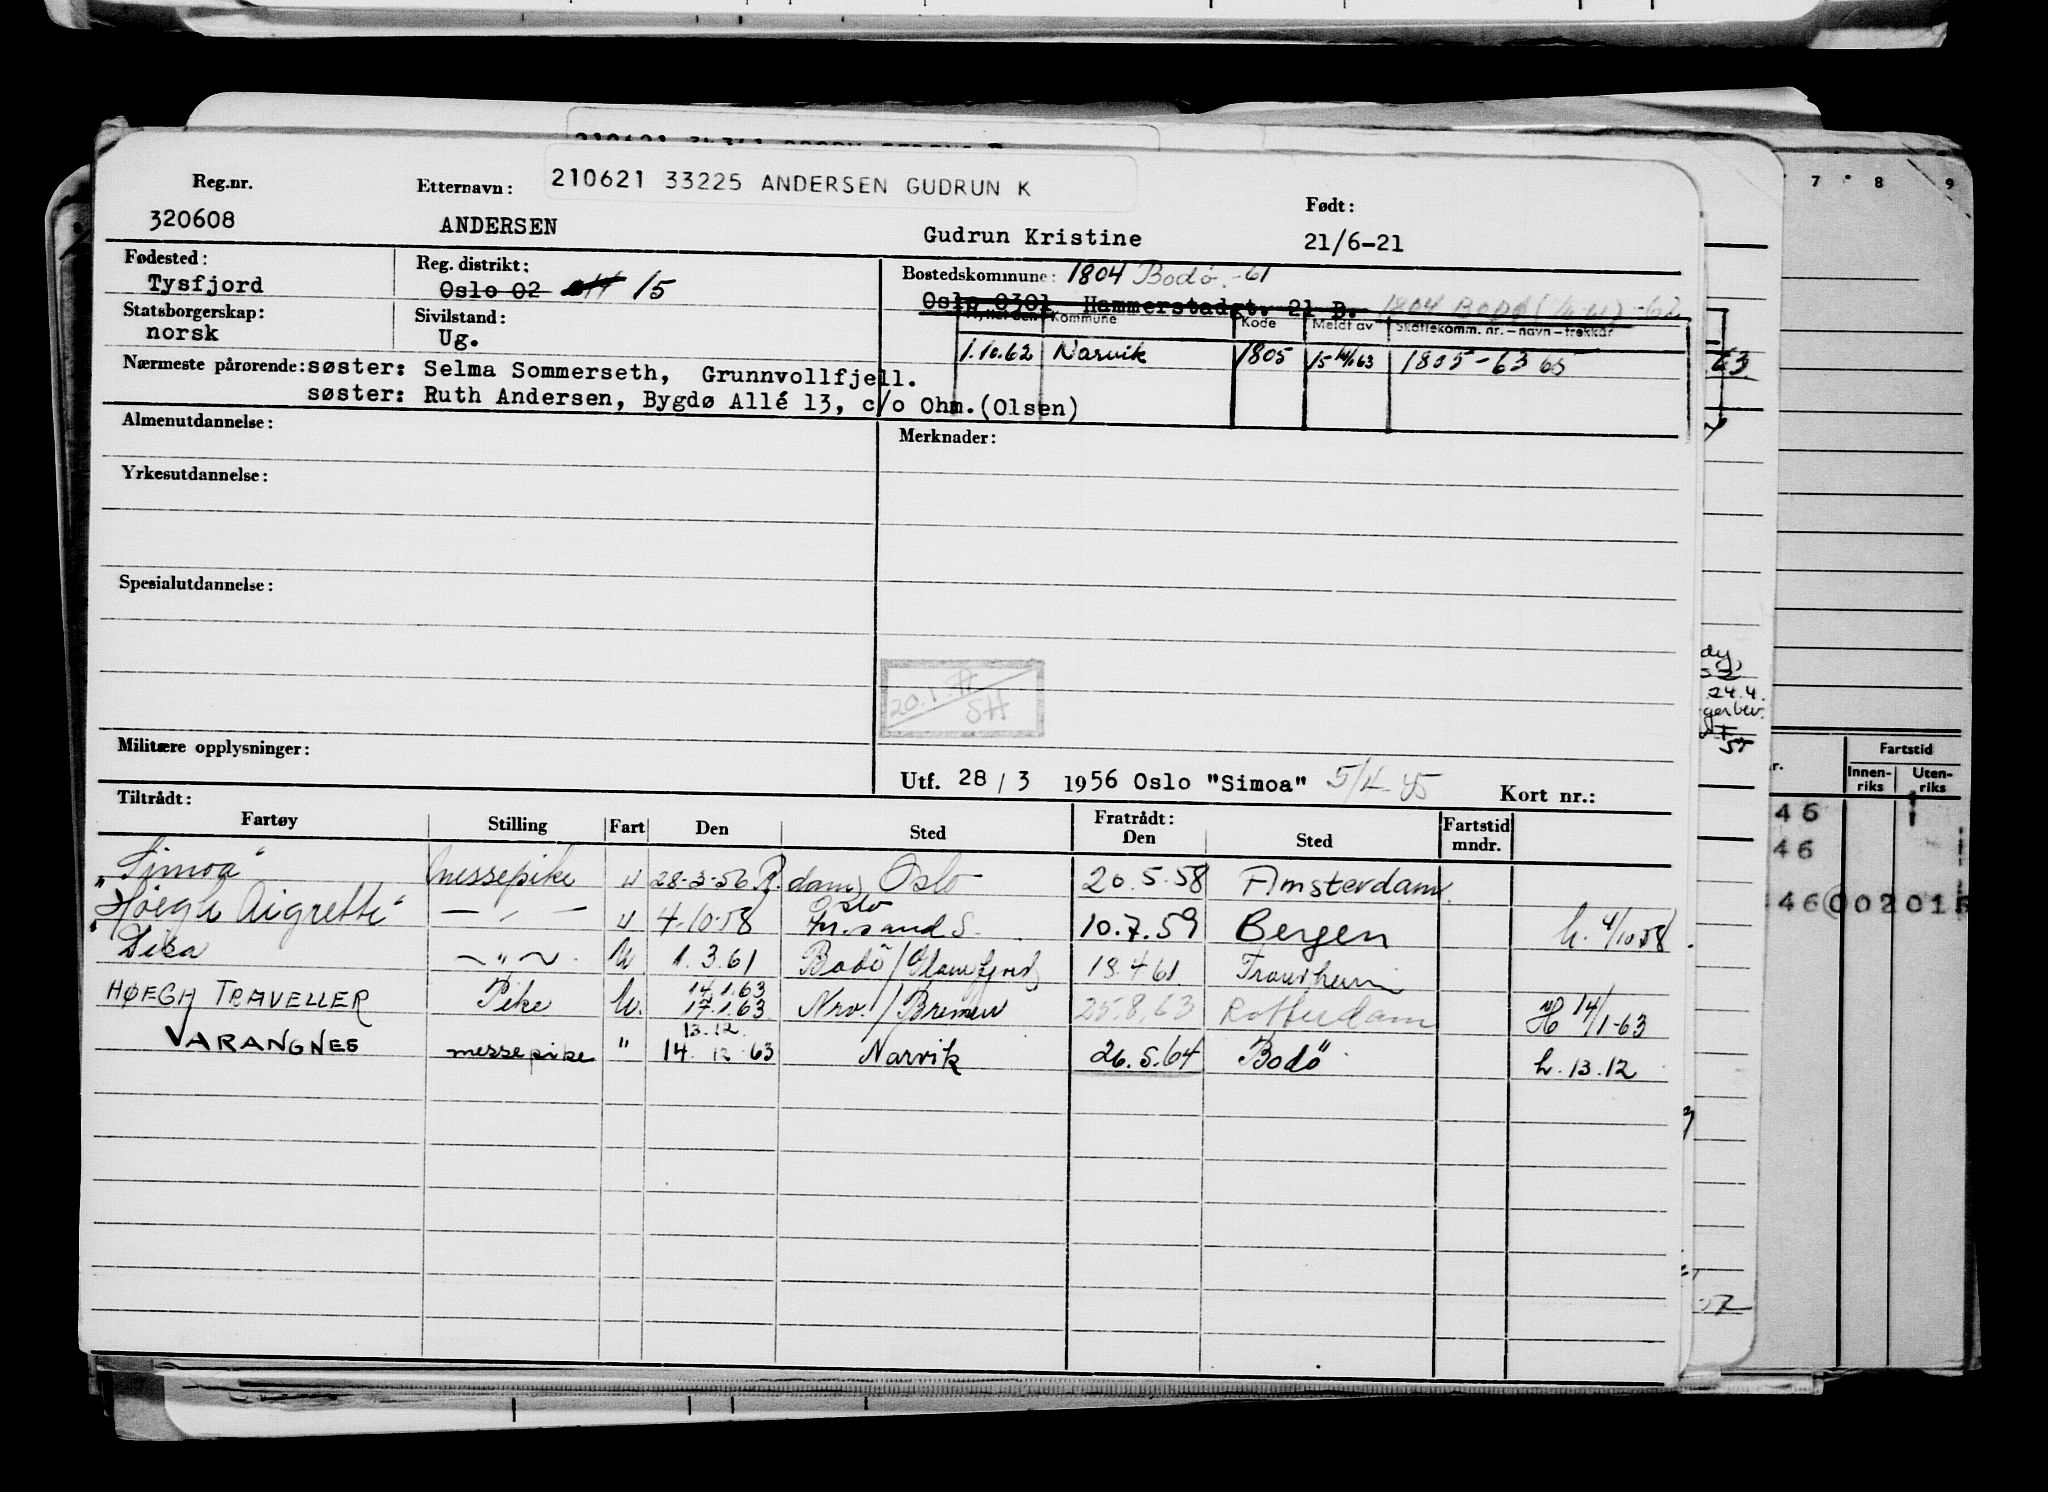 Reg.nr. Etternavn: 210621 33225 ANDERSEN GUDRUN K Født:
320608 ANDERSEN Gudrun Kristine 21/6-21
Fødested: Reg. distrikt: Bostedskommune: 1804 Bodö -61
Tysfjord Oslo 02 15 Oslo 0301 Hammerstadgt. 21 B. 1804 BODØ -62
Statsborgerskap: Sivilstand: Kommune Kode Meldt av Skattekomm. nr. – navn – trekkår
norsk Ug. 1.10.62 Narvik 1805 15-14/1 63 1805-63 65
Nærmeste pårørende: søster: Selma Sommerseth, Grunnvollfjell.
søster: Ruth Andersen, Bygdø Allé 13, c/o Ohm. (Olsen)
Almenutdannelse: Merknader:
Yrkesutdannelse:
Spesialutdannelse:
20.1
SH
Militære opplysninger:
Utf. 28 / 3 1956 Oslo "Simoa" Kort nr.:
Tiltrådt: Fratrådt:
Fartøy Stilling Fart Den Sted Den Sted Fartstid mndr.
"Simoa" messepike u 28-3-56 R.dam, Oslo 20.5.58 Amsterdam
"Høegh Aigrette" — " — u 4-10-58 Oslo Kr.sand S. 10.7.59 Bergen h. 4/10 58
— " — U 1.3.61 Bodö / Glomfjord 18.4.61 Trondheim
14.1.63
HØEGH TRAVELLER Pike U. 17.1.63 Nrv. / Bremen 25.8.63 Rotterdam H 14/1-63
13.12
VARANGNES messepike " 14.12.63 Narvik 26.5.64 Bodö h. 13.12
7 8 9
63
24.4.
Fartstid
Innen-riks Uten-riks
46
46
46 002 01